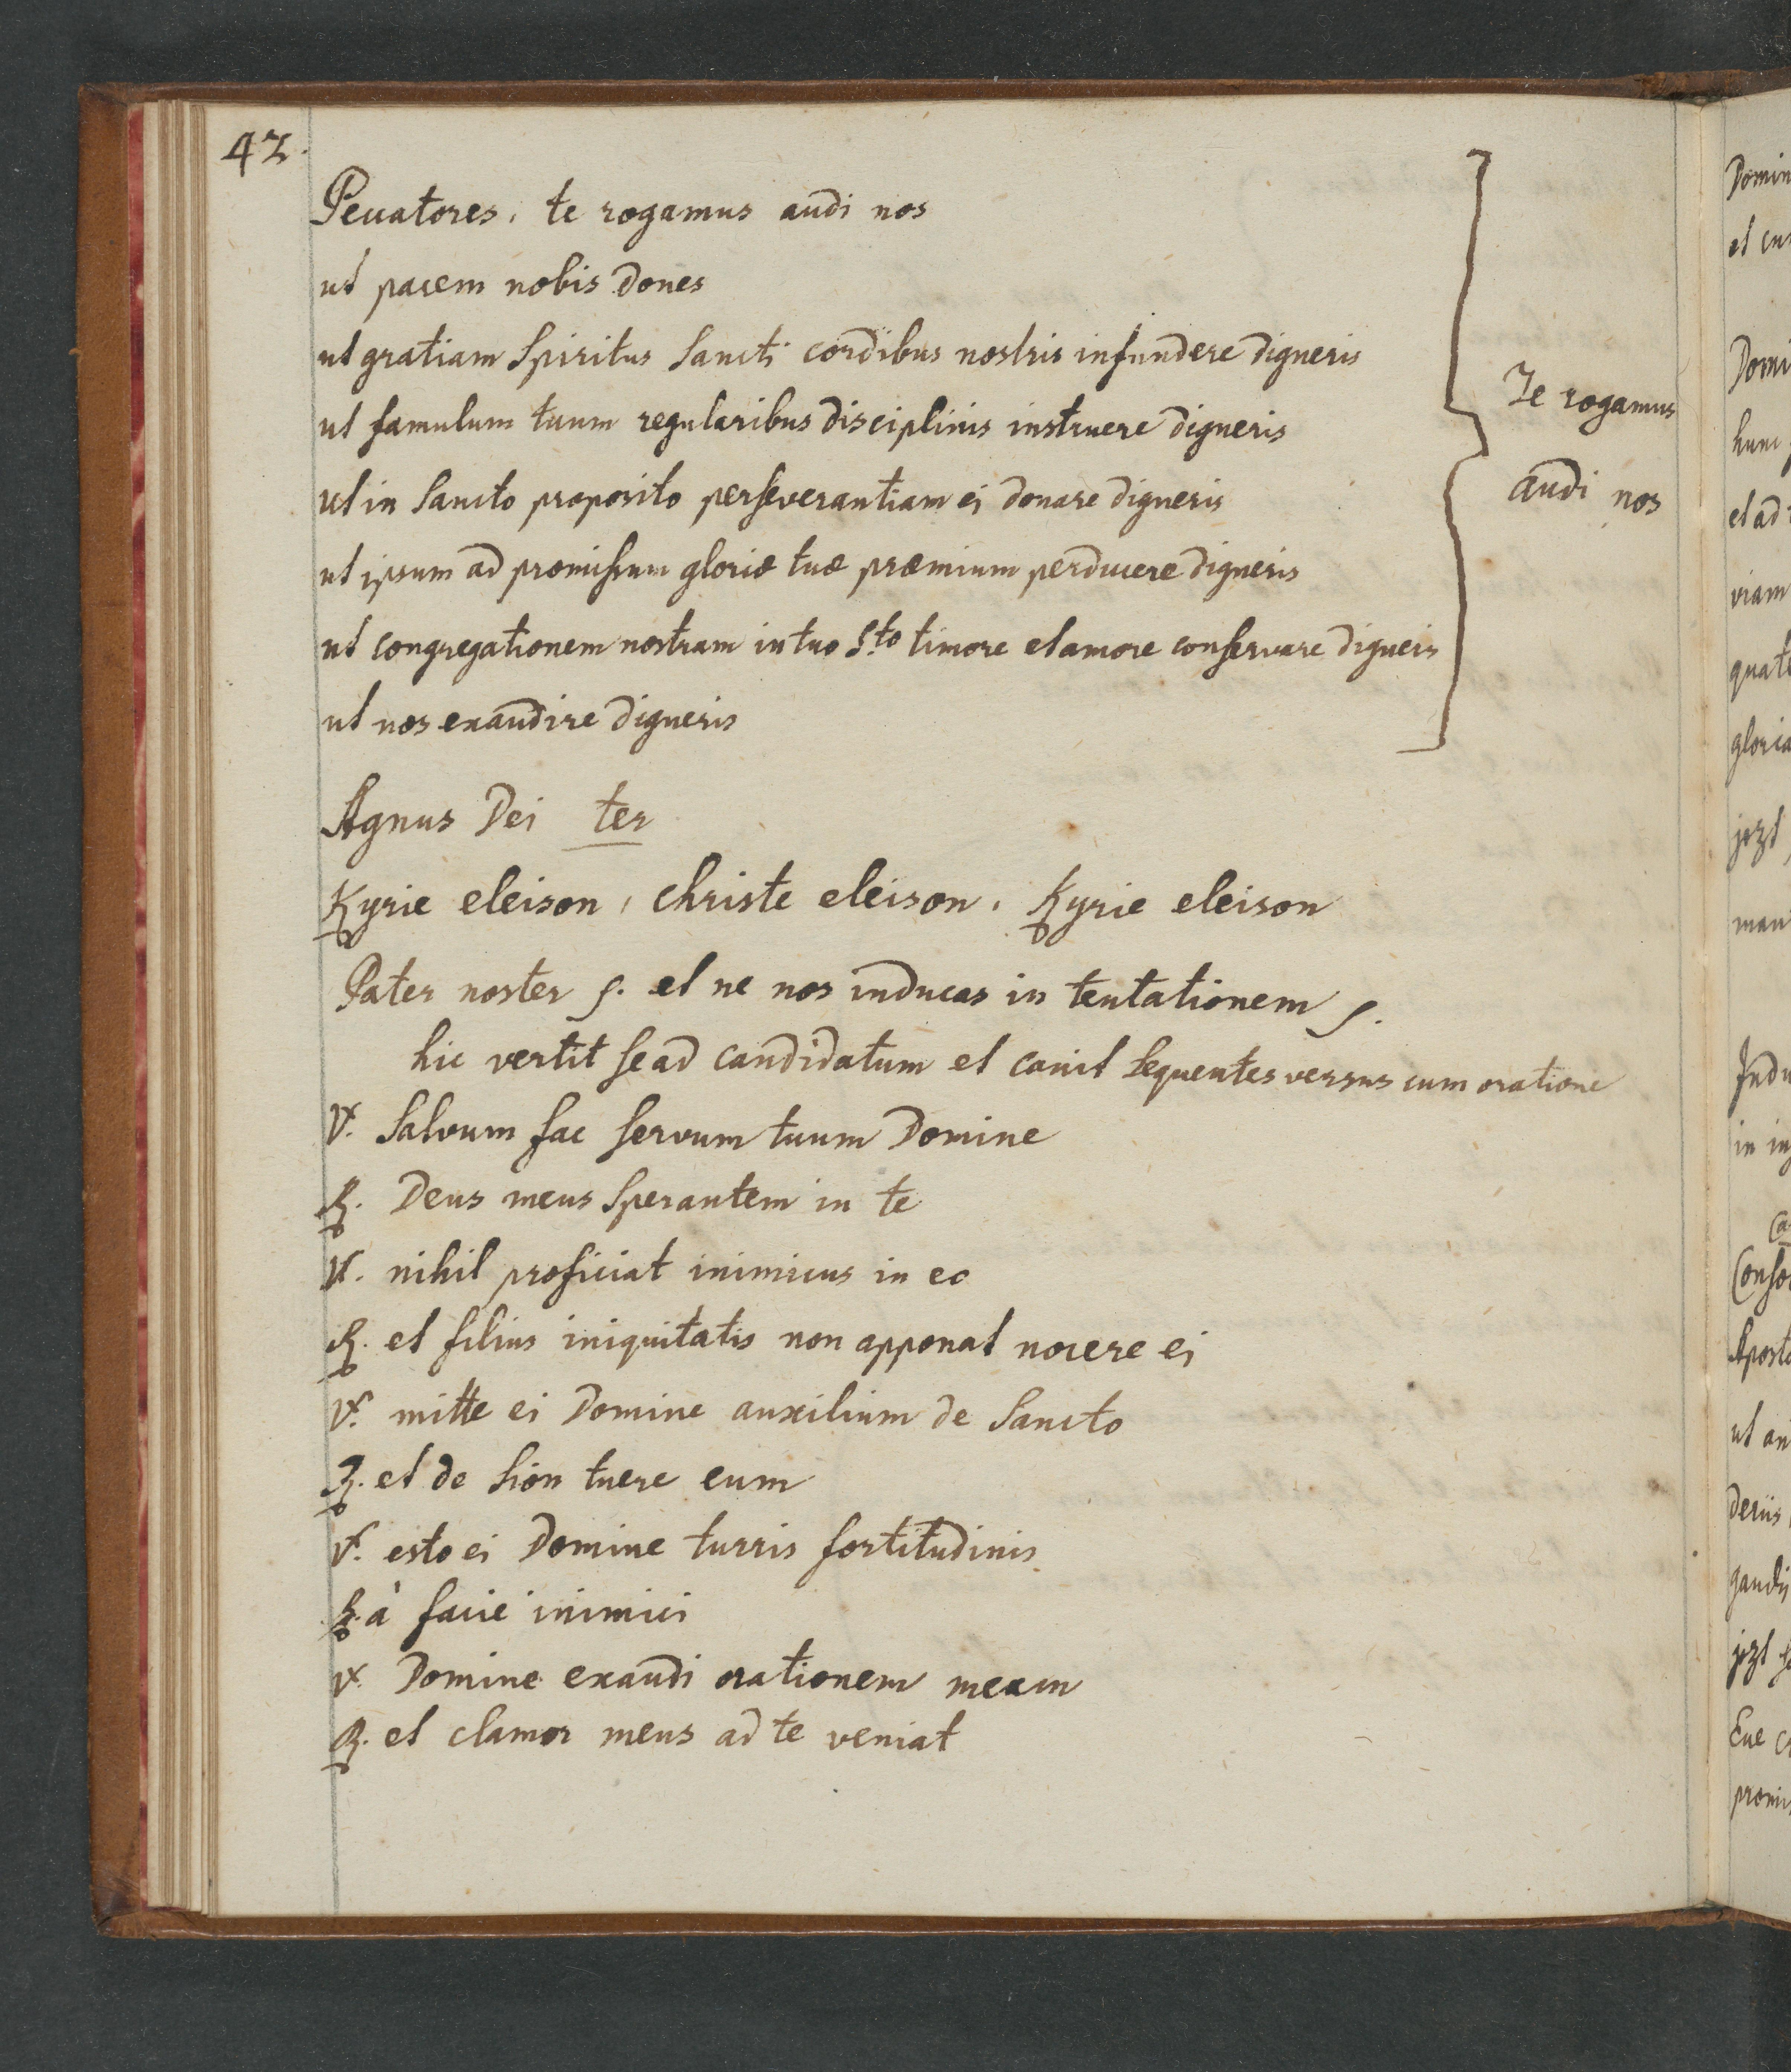 42.
Peccatores, te rogamus audi nos
ut pacem nobis dones
ut gratiam Spiritus Sancti cordibus nostris infundere digneris
ut famulum tuum regularibus disciplinis instruere digneris
ut in Sancto proposito perseverantiam ei donare digneris
ut ipsum ad promissum gloriæ tuæ præmium perducere digneris
ut congregationem nostram in tuo S.to timore et amore conservare digneris
ut nos exaudire digneris
Te rogamus
audi nos
Agnus Dei ter
Kyrie eleison, Christe eleison, Kyrie eleison
Pater noster et ne nos inducas in tentationem
hic vertit se ad candidatum et canit sequentes versus cum oratione
℣. Salvum fac servum tuum Domine
℟. Deus meus sperantem in te
℣. nihil proficiat inimicus in eo
℟. et filius iniquitatis non apponat nocere ei
℣. mitte ei Domine auxilium de Sancto
℟. et de Sion tuere eum
℣. esto ei Domine turris fortitudinis
℟. à facie inimici
℣. Domine exaudi orationem meam
℟. et clamor meus ad te veniat